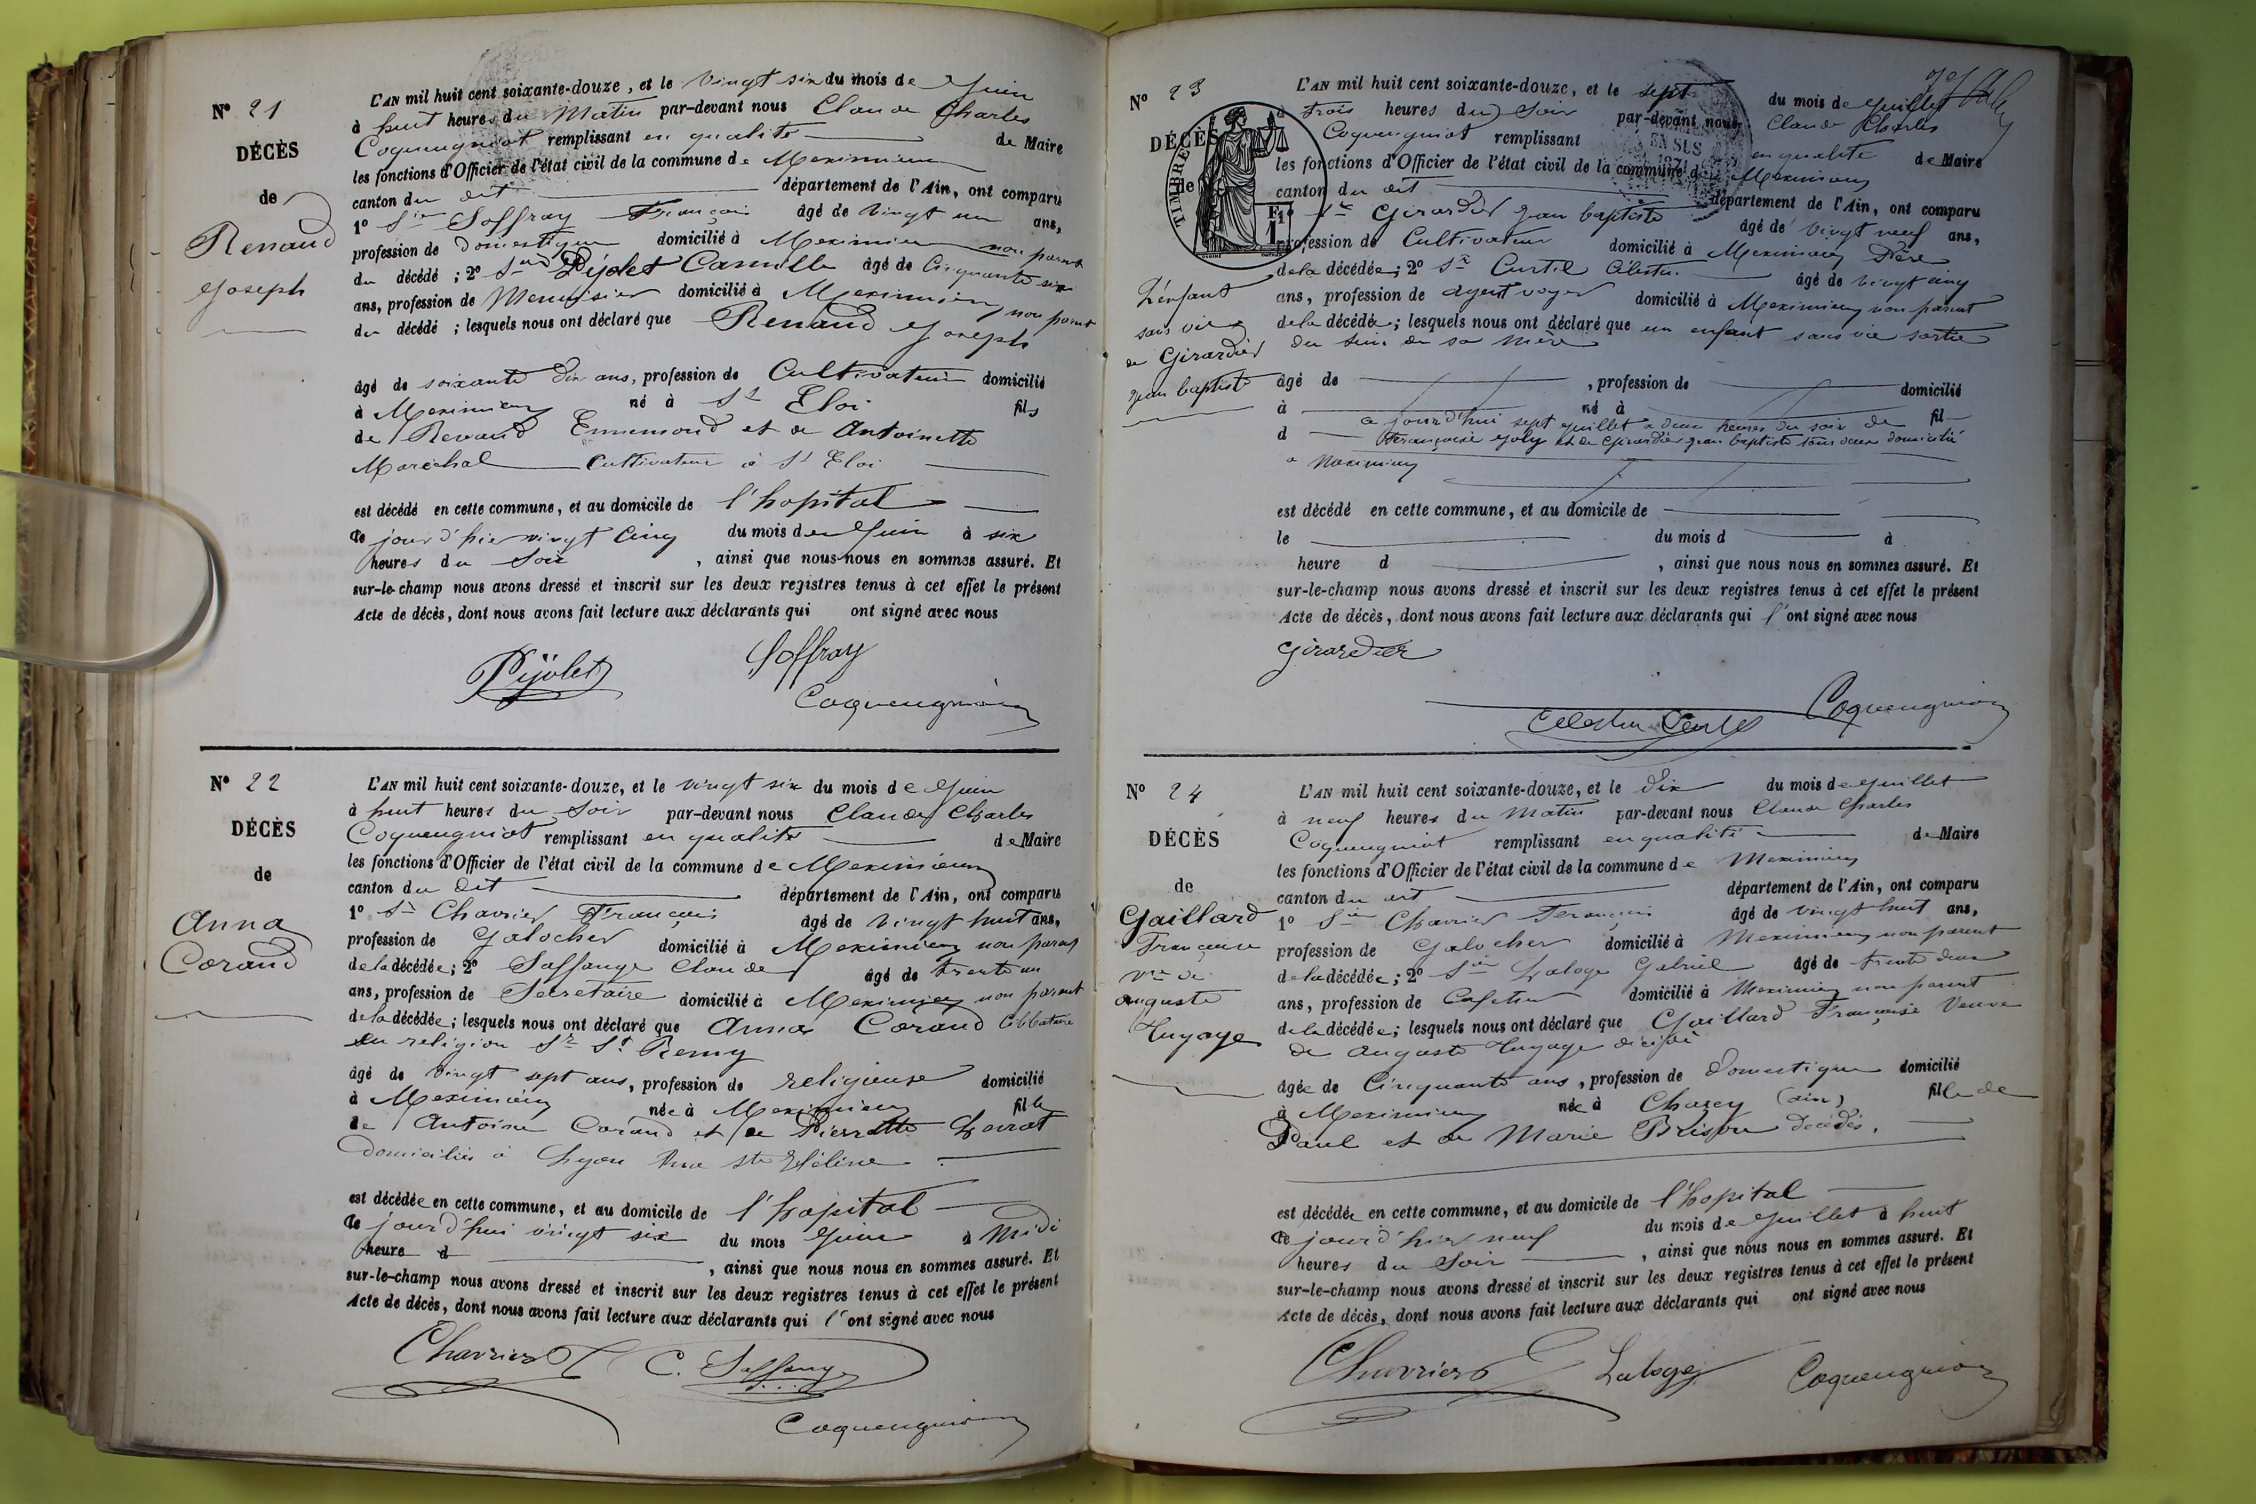 N° 21
DÉCÈS
de
Renaud
Joseph
L'AN mil huit cent soixante-douze, et le vingt six du mois de Juin
à huit heures du Matin par-devant nous Claude Charles
Coquengniot remplissant en qualité de Maire
les fonctions d'Officier de l'état civil de la commune de Meximieux
canton du dit département de l'Ain, ont comparu
1° Sr Soffray François âgé de vingt un ans,
profession de domestique domicilié à Meximieux non parent
du décédé ; 2° Sr Pijolet Camille âgé de Cinquante six
ans, profession de Menuisier domicilié à Meximieux non parent
du décédé ; lesquels nous ont déclaré que Renaud Joseph
âgé de soixante dix ans, profession de Cultivateur domicilié
à Meximieux né à St Eloi fils
de Renaud Ennemond et de Antoinette
Maréchal Cultivateur à St Eloi
est décédé en cette commune, et au domicile de l'hopital
le jour d'hier vingt cinq du mois de Juin à six
heures du Soir, ainsi que nous nous en sommes assuré. Et
sur-le-champ nous avons dressé et inscrit sur les deux registres tenus à cet effet le présent
Acte de décès, dont nous avons fait lecture aux déclarants qui ont signé avec nous
Pijolet Soffray
Coquengniot
N° 22
DÉCÈS
de
Anna
Corand
L'AN mil huit cent soixante-douze, et le vingt six du mois de Juin
à huit heures du Soir par-devant nous Claude Charles
Coquengniot remplissant en qualité de Maire
les fonctions d'Officier de l'état civil de la commune de Meximieux
canton du dit département de l'Ain, ont comparu
1° Sr Chavrier François âgé de vingt huit ans,
profession de Galocher domicilié à Meximieux non parent
de la décédée ; 2° Saffange Claude âgé de trente un
ans, profession de Secretaire domicilié à Meximieux non parent
de la décédée ; lesquels nous ont déclaré que Anna Corand Célibataire
en religion Sr St Remy
âgé de vingt sept ans, profession de religieuse domicilié
à Meximieux née à Meximieux fille
de Antoine Corand et de Pierrette
domiciliés à Lyon Rue Ste Hélène
est décédée en cette commune, et au domicile de l'hopital
le jour d'hui vingt six du mois Juin à Midi
heure d, ainsi que nous nous en sommes assuré. Et
sur-le-champ nous avons dressé et inscrit sur les deux registres tenus à cet effet le présent
Acte de décès, dont nous avons fait lecture aux déclarants qui l' ont signé avec nous
Chavrier C. Saffange
Coquengniot
N° 23
DÉCÈS
de
L'enfant
sans vie
de Girardier
Jean baptiste
TIMBRE
F1
L'AN mil huit cent soixante-douze, et le sept du mois de Juillet
à trois heures du Soir par-devant nous Claude Charles
Coquengniot remplissant en qualité de Maire
EN SUS
1871
les fonctions d'Officier de l'état civil de la commune de Meximieux
canton du dit département de l'Ain, ont comparu
Sr Girardier Jean baptiste âgé de vingt neuf ans,
profession de Cultivateur domicilié à Meximieux Père
de la décédée ; 2° Sr Curtil Célestin âgé de vingt cinq
ans, profession de agent voyer domicilié à Meximieux non parent
de la décédée ; lesquels nous ont déclaré que un enfant sans vie sortie
du sein de sa mère
âgé de, profession de domicilié
à né à
a jourd'hui sept Juillet a deux heures du soir de fil
d Françoise Joly et de Girardier Jean baptiste tous deux domicilié
a Meximieux
est décédé en cette commune, et au domicile de
le du mois d à
heure d, ainsi que nous nous en sommes assuré. Et
sur-le-champ nous avons dressé et inscrit sur les deux registres tenus à cet effet le présent
Acte de décès, dont nous avons fait lecture aux déclarants qui l' ont signé avec nous
Girardier
Celestin Curtil Coquengniot
N° 24
DÉCÈS
de
Gaillard
Françoise
Ve de
Auguste
Huyage
L'AN mil huit cent soixante-douze, et le dix du mois de Juillet
à neuf heures du Matin par-devant nous Claude Charles
Coquengniot remplissant en qualité de Maire
les fonctions d'Officier de l'état civil de la commune de Meximieux
canton du dit département de l'Ain, ont comparu
1° Sr Chavrier François âgé de vingt huit ans,
profession de Galocher domicilié à Meximieux non parent
de la décédée ; 2° Sr Laloge Gabriel âgé de trente deux
ans, profession de Cafetier domicilié à Meximieux non parent
de la décédée ; lesquels nous ont déclaré que Gaillard Françoise Veuve
de Auguste Huyage
âgée de Cinquante ans, profession de Domestique domicilié
à Meximieux née à Charey (ain) fille de
Paul et de Marie Brison décédés.
est décédée en cette commune, et au domicile de l'hopital
le jour d'hier neuf du mois de Juillet à huit
heures du Soir, ainsi que nous nous en sommes assuré. Et
sur-le-champ nous avons dressé et inscrit sur les deux registres tenus à cet effet le présent
Acte de décès, dont nous avons fait lecture aux déclarants qui ont signé avec nous
Chavrier Laloge Coquengniot